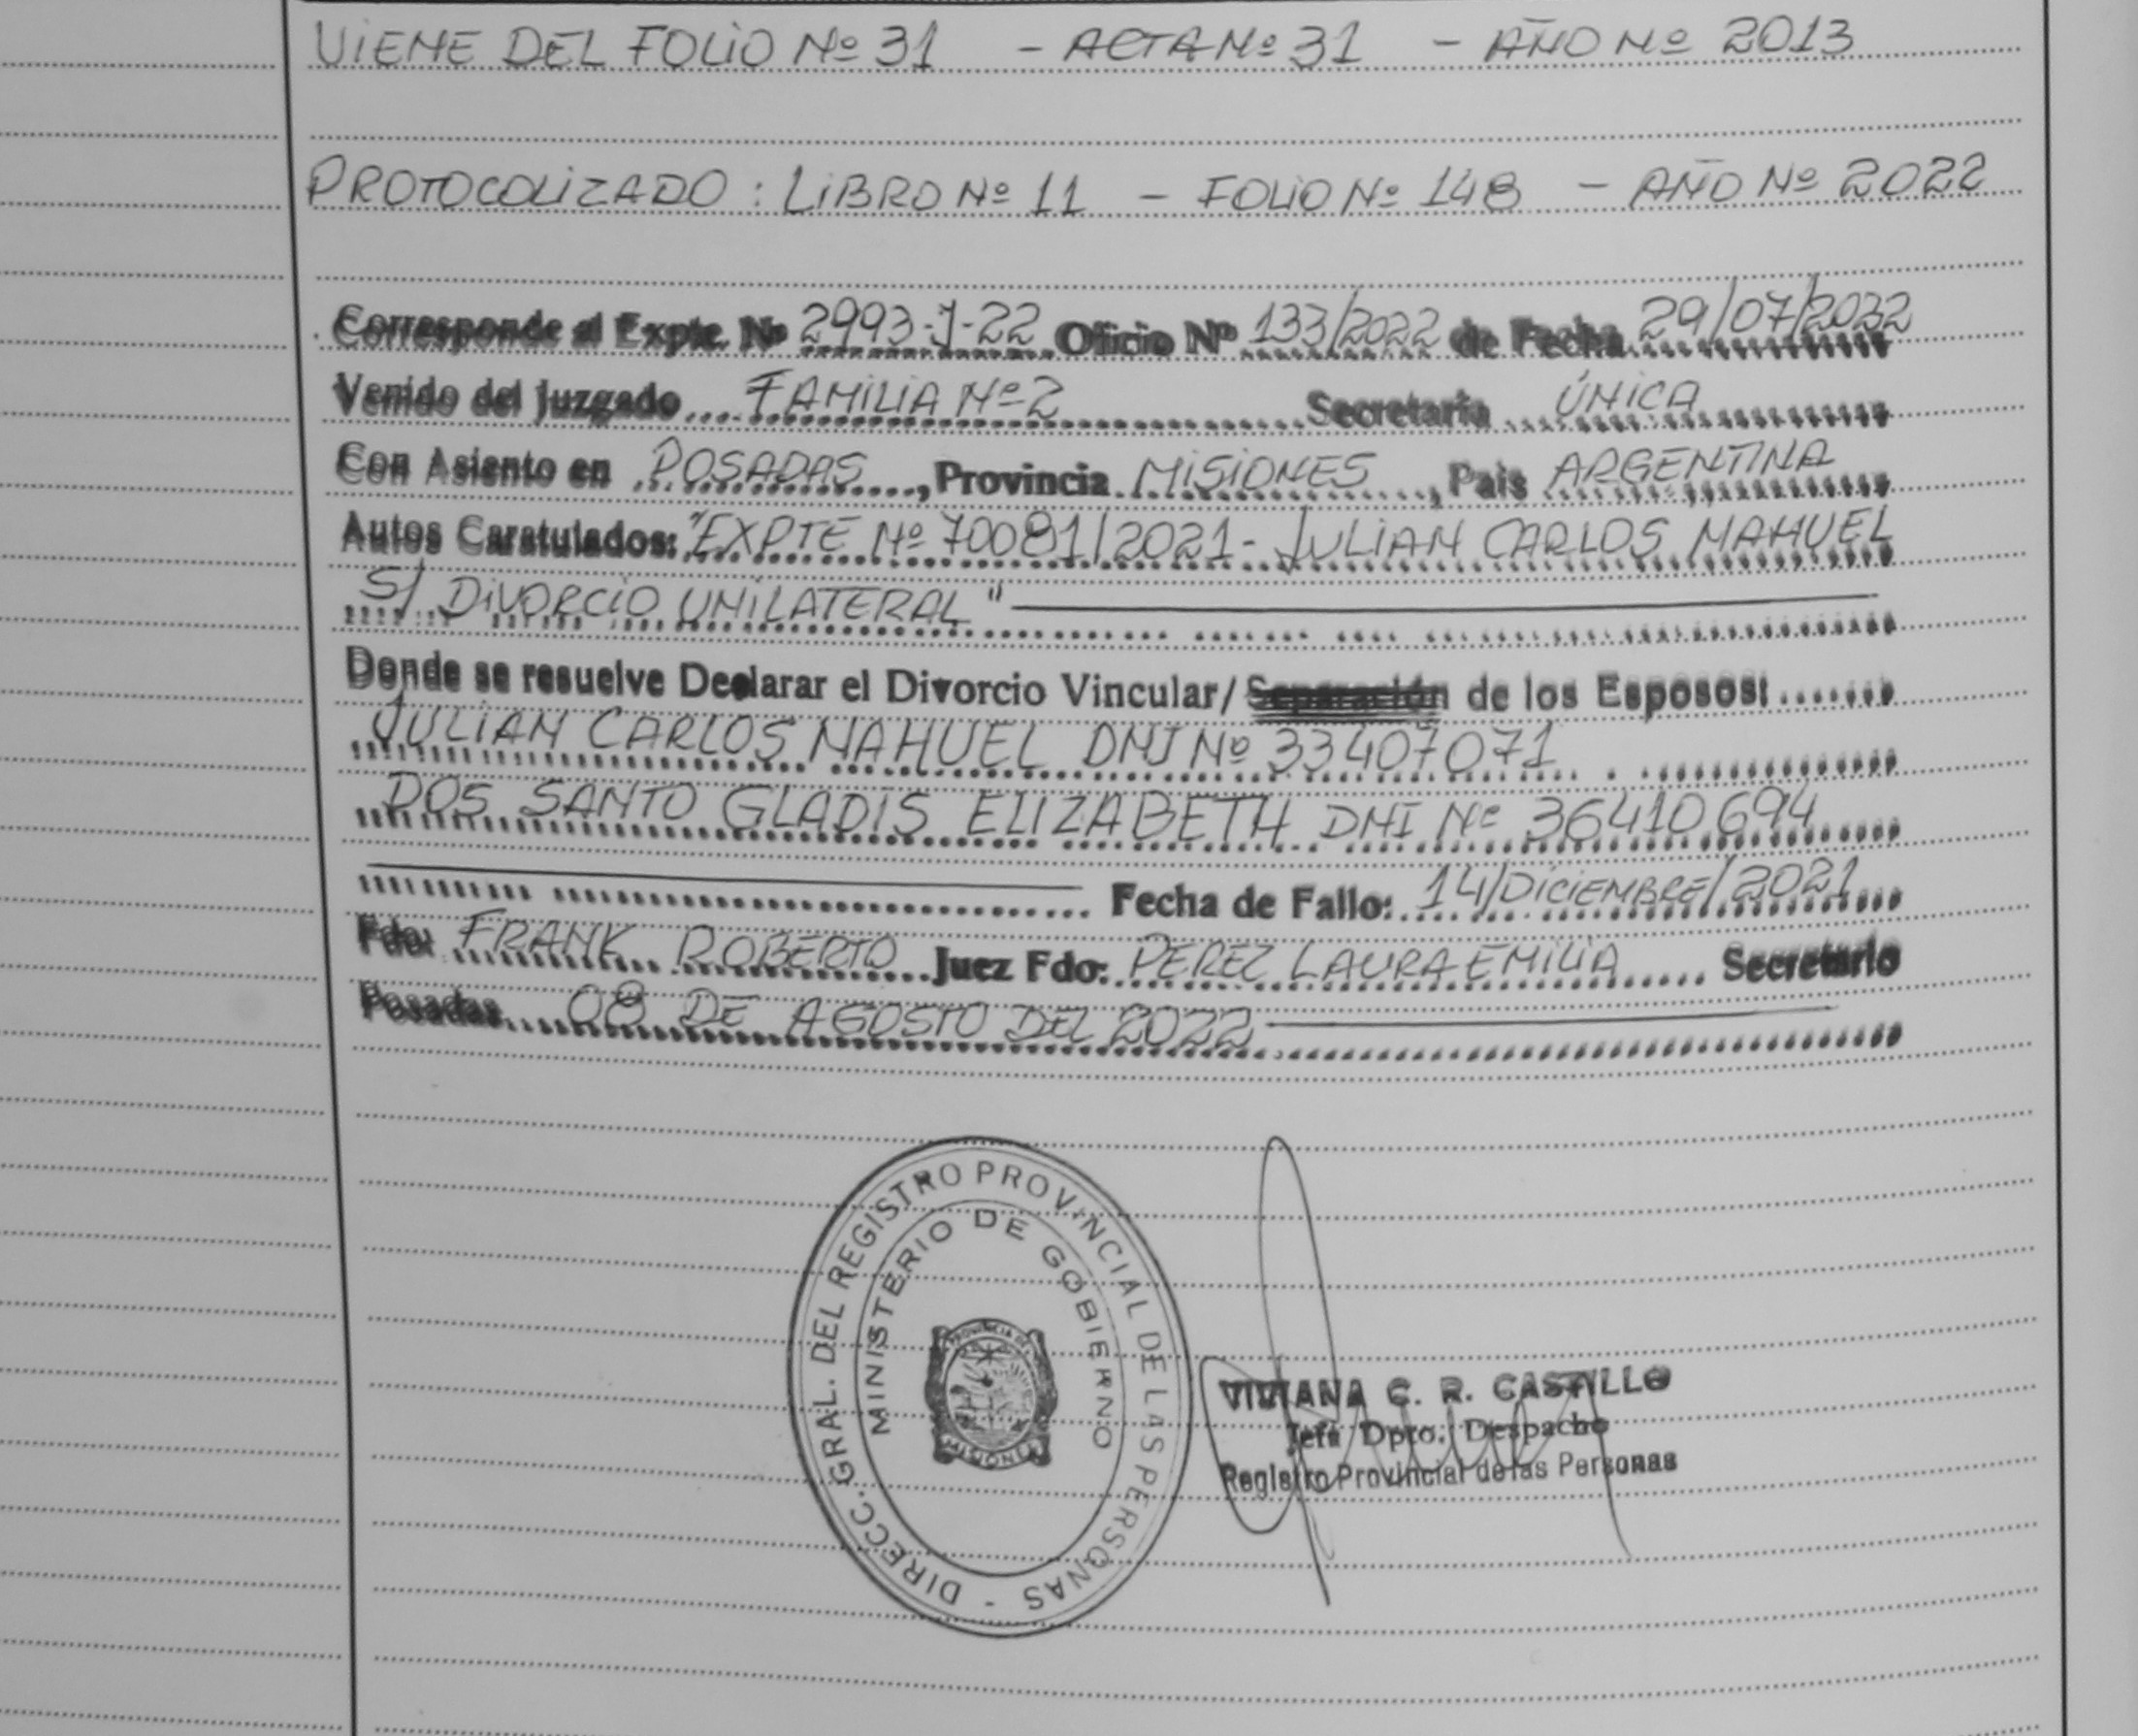 VIENE DEL FOLIO Nº 31 - ACTA Nº 31 - AÑO Nº 2013
PROTOCOLIZADO : LIBRO Nº 11 - FOLIO Nº 148 - AÑO Nº 2022
Corresponde al Expte. Nº 2993-J-22 Oficio Nº 133/2022 de Fecha 29/07/2022
Venido del Juzgado FAMILIA Nº 2 Secretaría ÚNICA
Con Asiento en POSADAS, Provincia MISIONES, País ARGENTINA
Autos Caratulados: "EXPTE Nº 70081/2021- JULIAN CARLOS NAHUEL
S/ DIVORCIO UNILATERAL"
Donde se resuelve Declarar el Divorcio Vincular/ Separación de los Esposos:
JULIAN CARLOS NAHUEL DNI Nº 33407071
DOS SANTO GLADIS ELIZABETH DNI Nº 36410694
Fecha de Fallo: 14/DICIEMBRE/2021
Fdo: FRANK ROBERTO Juez Fdo: PEREZ LAURA EMILIA Secretario
Posadas, 08 DE AGOSTO DEL 2022
DIRECC. GRAL. DEL REGISTRO PROVINCIAL DE LAS PERSONAS -
MINISTERIO DE GOBIERNO
PROVINCIA DE
MISIONES
VIVIANA C. R. CASTILLO
Jefa Dpto. Despacho
Registro Provincial de las Personas